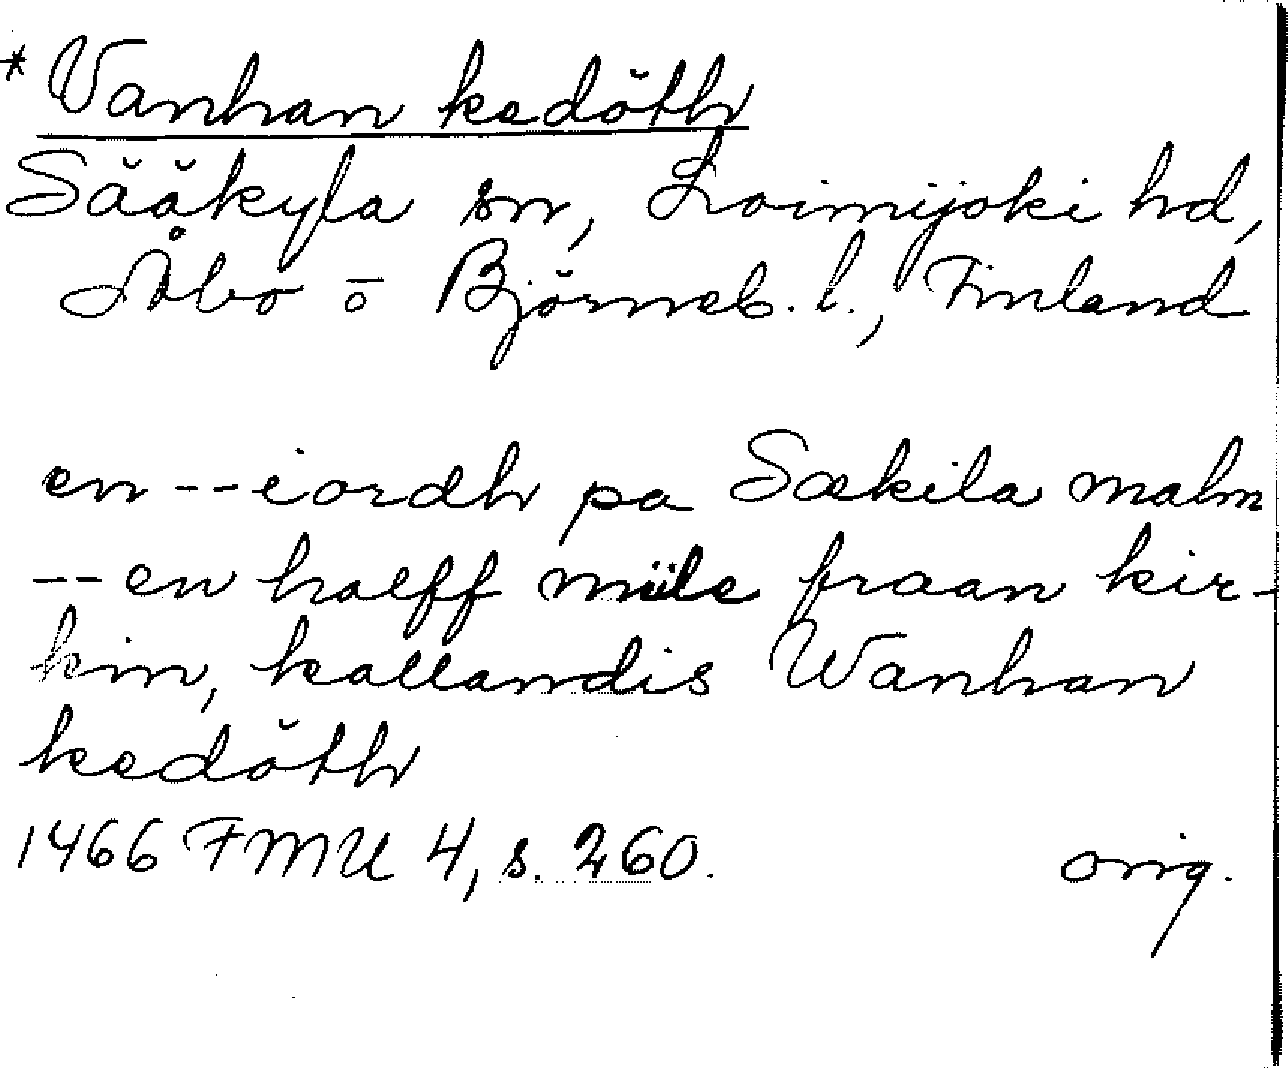 * Vanhan kedöth
Sääkyla sn, Loimijoki hd,
Åbo o Björneb. l., Finland
en -- iordh pa Sækila malm
-- en halff miile fraan kir-
kin, kallandis Wanhan
kedöth
1466 FMU 4, s. 260. orig.